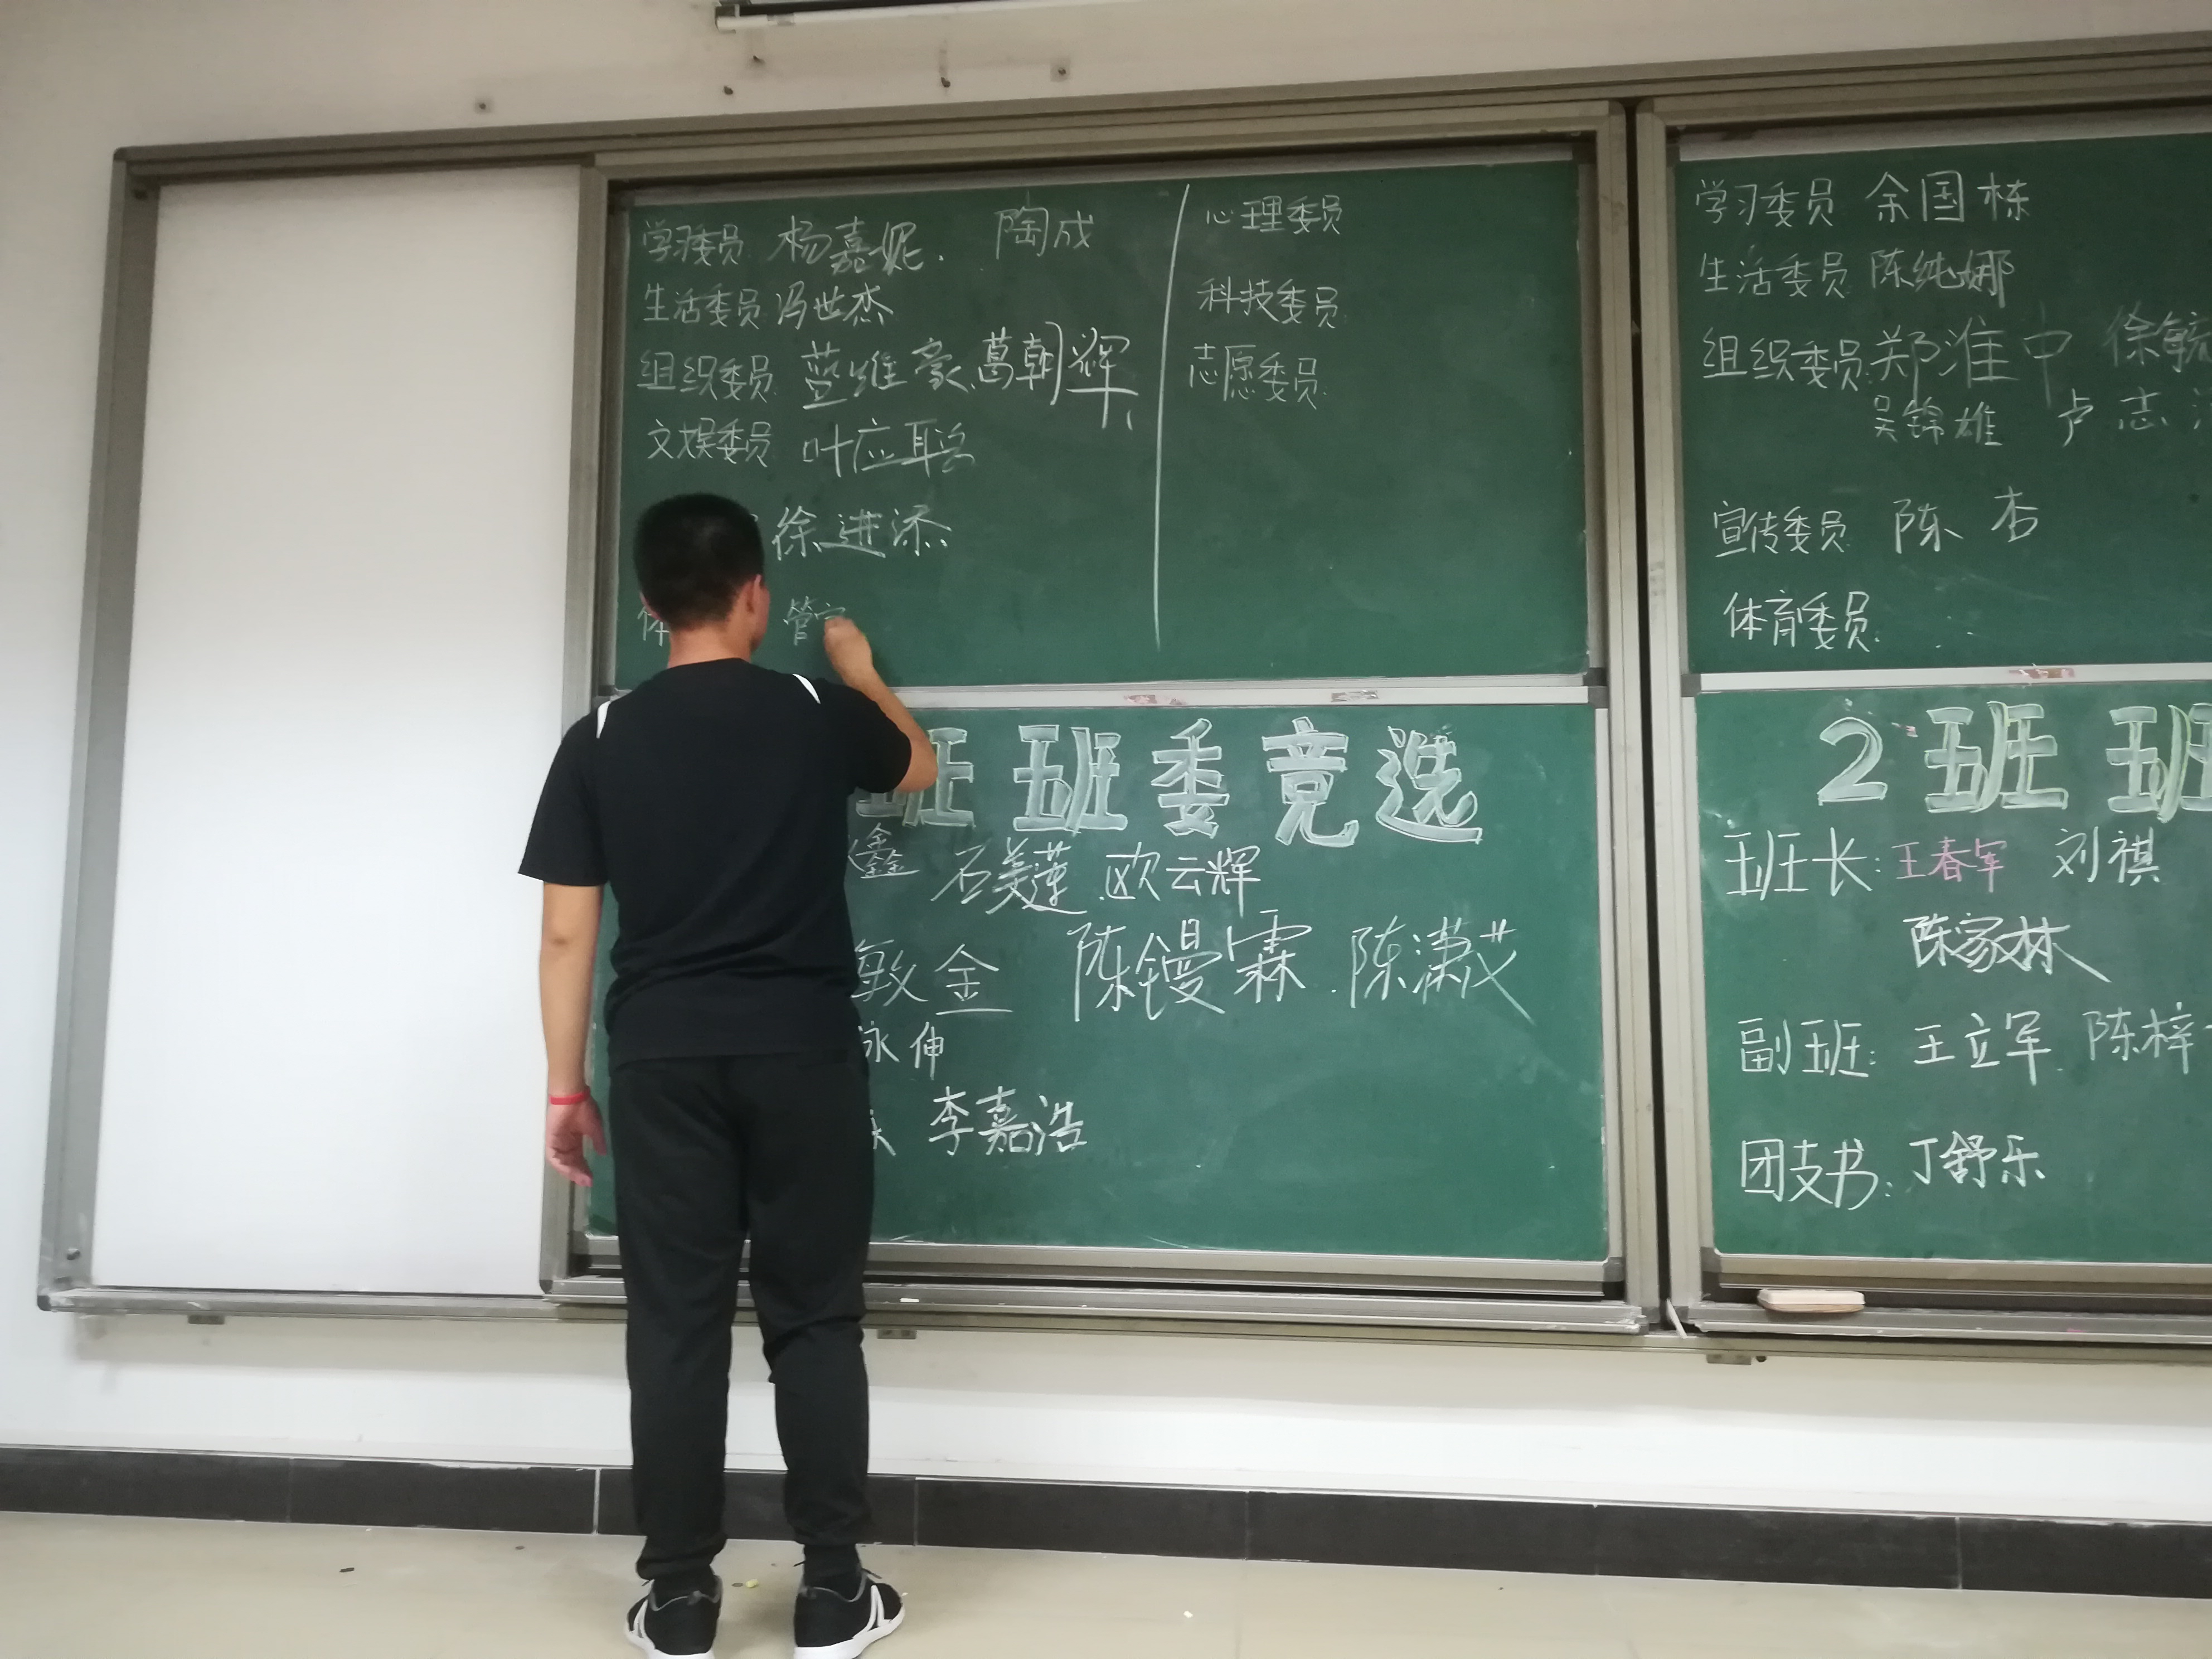 学习委员 杨嘉妮. 陶成
生活委员 冯世杰
组织委员 蓝维豪、葛朝辉
文娱委员 叶应聪
徐进添
体 管
心理委员
科技委员
志愿委员
班班委竞选
鑫 石美莲. 欧云辉
敏金 陈镘霖. 陈潇
泳伸
李嘉浩
学习委员 余国栋
生活委员 陈纯娜
组织委员 郑淮中 徐毓
吴锦雄 卢志
宣传委员 陈杏
体育委员
2班班
班长: 王春军 刘祺
陈家林
副班: 王立军. 陈梓
团支书: 丁舒乐